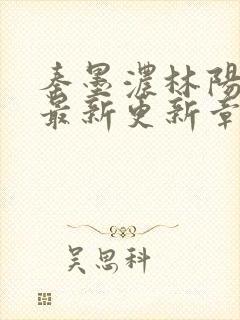 秦墨濃林陽
最新更新章
吴思科